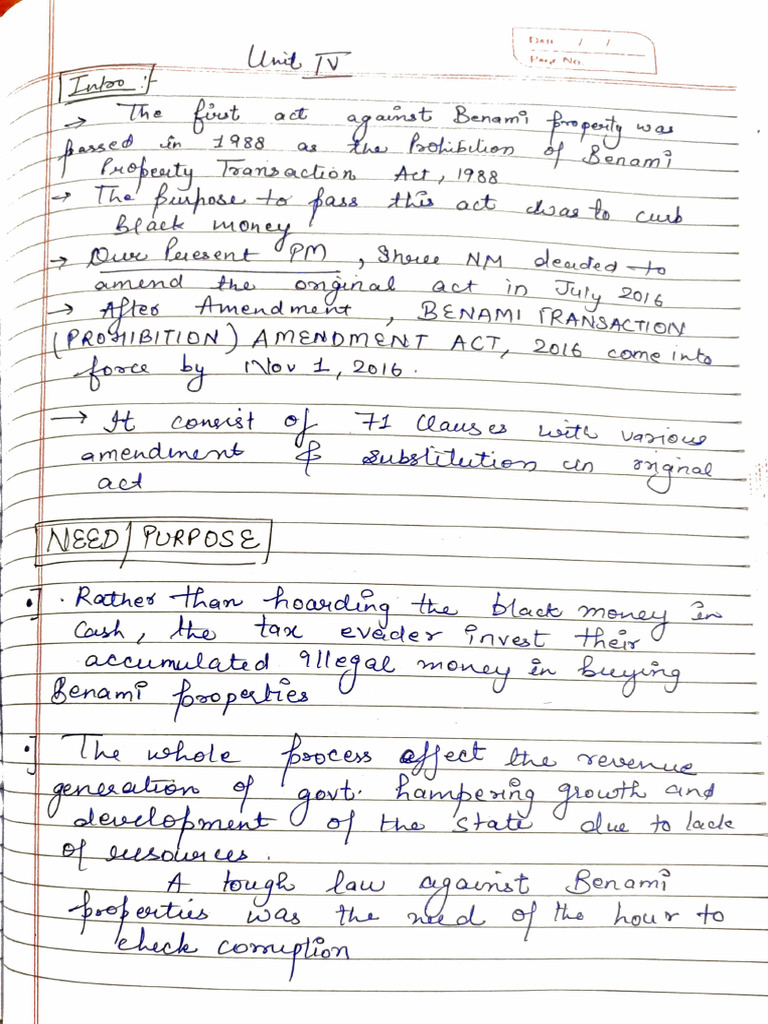 Unit IV
Date / /
Page No.
Intro :-
→ The first act against Benami property was
passed in 1988 as the Prohibition of Benami
Property Transaction Act, 1988
→ The purpose to pass this act was to curb
Black money
→ Our Present PM, Shree NM decided to
amend the original act in July 2016
→ After Amendment, BENAMI TRANSACTION
(PROHIBITION) AMENDMENT ACT, 2016 come into
force by Nov 1, 2016.
→ It consist of 71 clauses with various
amendment & substitution in original
act
NEED/PURPOSE
•] . Rather than hoarding the black money in
Cash, the tax evader invest their
accumulated illegal money in buying
Benami properties
•] The whole process affect the revenue
generation of govt. hampering growth and
development of the State due to lack
of resources.
A tough law against Benami
properties was the need of the hour to
check corruption